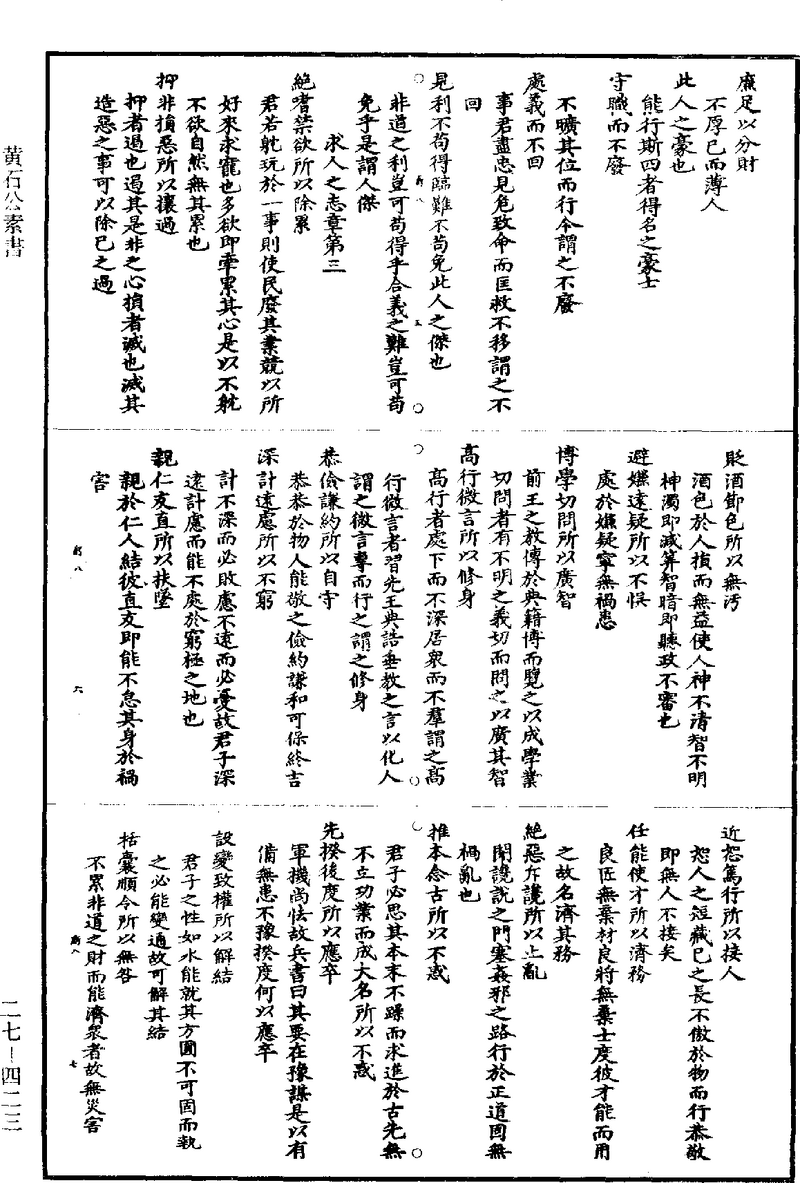 黃石公素書
廉足以分財
不厚己而薄人
此人之豪也
能行斯四者得名之豪士
守職而不廢
不曠其位而行令謂之不廢
處義而不回
事君盡忠見危致命而匡救不移謂之不
回
見利不苟得臨難不苟免此人之傑也
非道之利豈可苟得乎合義之難豈可苟
免乎是謂人傑
求人之志章第三
絕嗜禁欲所以除累
君若躭玩於一事則使民廢其業競以所
好來求寵也多欲即牽累其心是以不躭
不欲自然無其累也
抑非損惡所以攘過
抑者遏也遏其是非之心損者滅也滅其
造惡之事可以除己之過
貶酒節色所以無污
酒色於人損而無益使人神不清智不明
神濁即減筭智暗即聽政不審也
避嫌遠疑所以不悞
處於嫌疑寧無禍患
博學切問所以廣智
前王之教傳於典籍博而覽之以成學業
切問者有不明之義切而問之以廣其智
高行微言所以修身
高行者處下而不深居衆而不羣謂之高
行微言者習先王典誥垂教之言以化人
謂之微言專而行之謂之修身
恭儉謙約所以自守
恭恭於物人能敬之儉約謙和可保終吉
深計遠慮所以不窮
計不深而必敗慮不遠而必憂故君子深
遠計慮而能不處於窮極之地也
親仁友直所以扶墜
親於仁人結彼直友即能不怠其身於禍
害
斯八
六
近恕篤行所以接人
恕人之短藏己之長不傲於物而行恭敬
即無人不接矣
任能使才所以濟務
良匠無棄材良將無棄士度彼才能而用
之故名濟其務
絕惡斥讒所以止亂
閉讒說之門塞姦邪之路行於正道固無
禍亂也
推本念古所以不惑
君子必思其本末不躁而求進於古先無
不立功業而成大名所以不惑
先揆後度所以應卒
軍機尚怯故兵書曰其要在豫謀是以有
備無患不豫揆度何以應卒
設變致權所以解結
君子之性如水能就其方圓不可固而執
之必能變通故可解其結
括囊順令所以無咎
不累非道之財而能濟衆者故無災害
斯八
七
二七—四二三